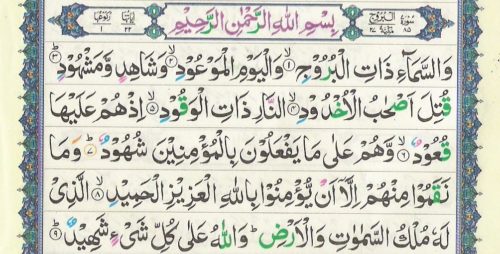 سُوْرَةُ الْبُرُوْجِ ٨٥ مَكِّيَّةٌ ٢٧
بِسْمِ اللّٰهِ الرَّحْمٰنِ الرَّحِيْمِ
اٰيَاتُهَا ٢٢ رُكُوْعُهَا ١
وَالسَّمَآءِ ذَاتِ الْبُرُوْجِ ۙ﴿۱﴾ وَالْيَوْمِ الْمَوْعُوْدِ ۙ﴿۲﴾ وَشَاهِدٍ وَّمَشْهُوْدٍ ؕ﴿۳﴾
قُتِلَ اَصْحٰبُ الْاُخْدُوْدِ ۙ﴿۴﴾ النَّارِ ذَاتِ الْوَقُوْدِ ۙ﴿۵﴾ اِذْهُمْ عَلَيْهَا
قُعُوْدٌ ۙ﴿۶﴾ وَّهُمْ عَلٰى مَا يَفْعَلُوْنَ بِالْمُؤْمِنِيْنَ شُهُوْدٌ ؕ﴿۷﴾ وَمَا
نَقَمُوْا مِنْهُمْ اِلَّاۤ اَنْ يُّؤْمِنُوْا بِاللّٰهِ الْعَزِيْزِ الْحَمِيْدِ ۙ﴿۸﴾ الَّذِىْ
لَهٗ مُلْكُ السَّمٰوٰتِ وَالْاَرْضِ ؕ وَاللّٰهُ عَلٰى كُلِّ شَىْءٍ شَهِيْدٌ ؕ﴿۹﴾